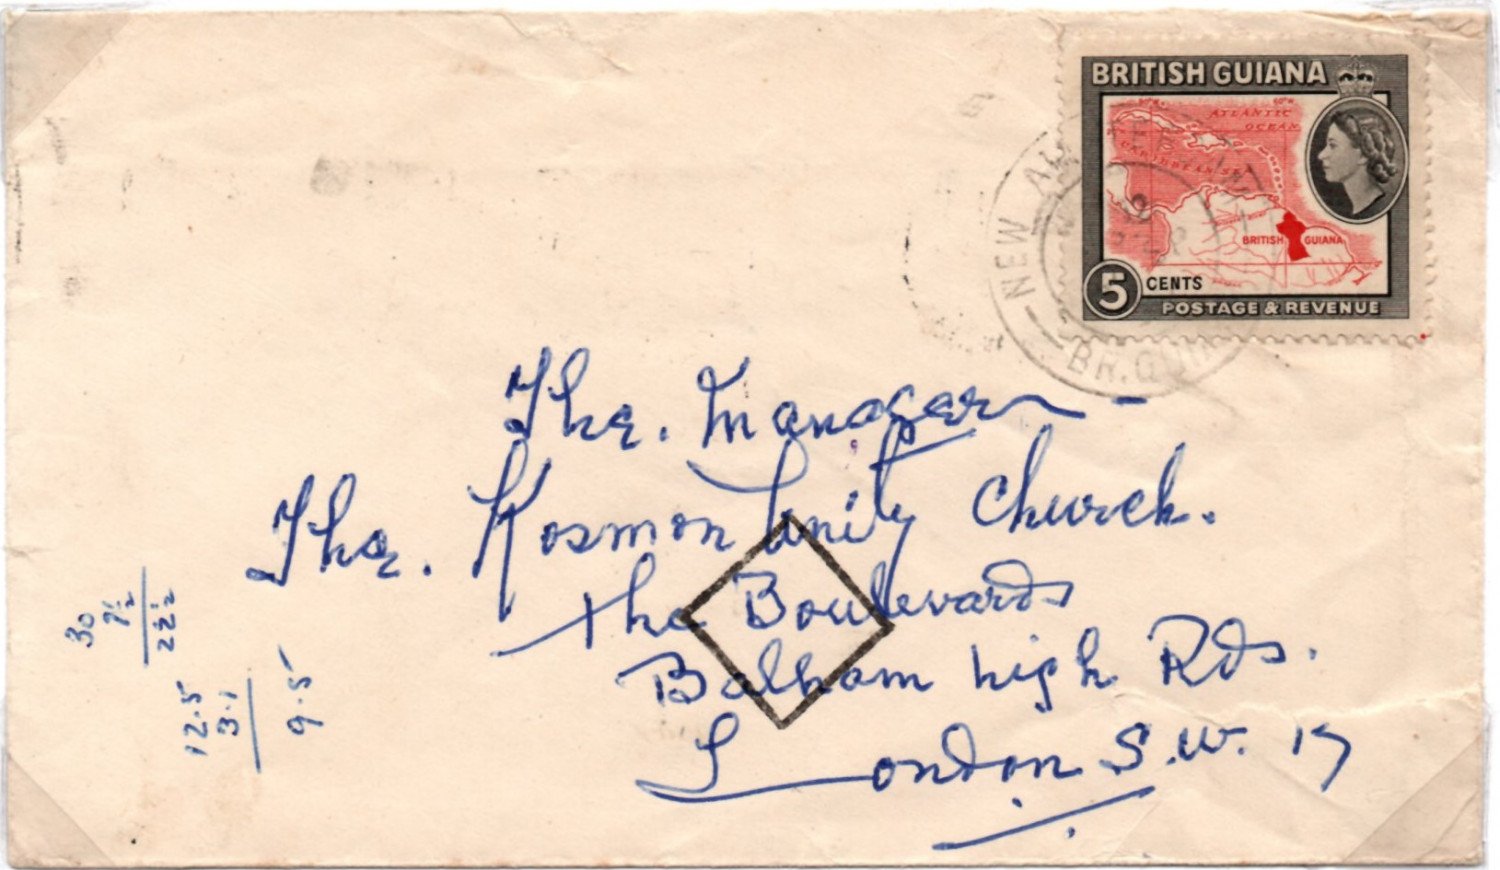 BRITISH GUIANA
ATLANTIC
OCEAN
CARIBBEAN SEA
BRITISH GUIANA
5 CENTS
POSTAGE & REVENUE
NEW AMSTERDAM
BR. GUIANA
The. Manager -
The. Kosmon Unity Church.
the Boulevards
Balham high Rds.
London S.W. 17
30
7½
22½
12.5
3.1
9.5